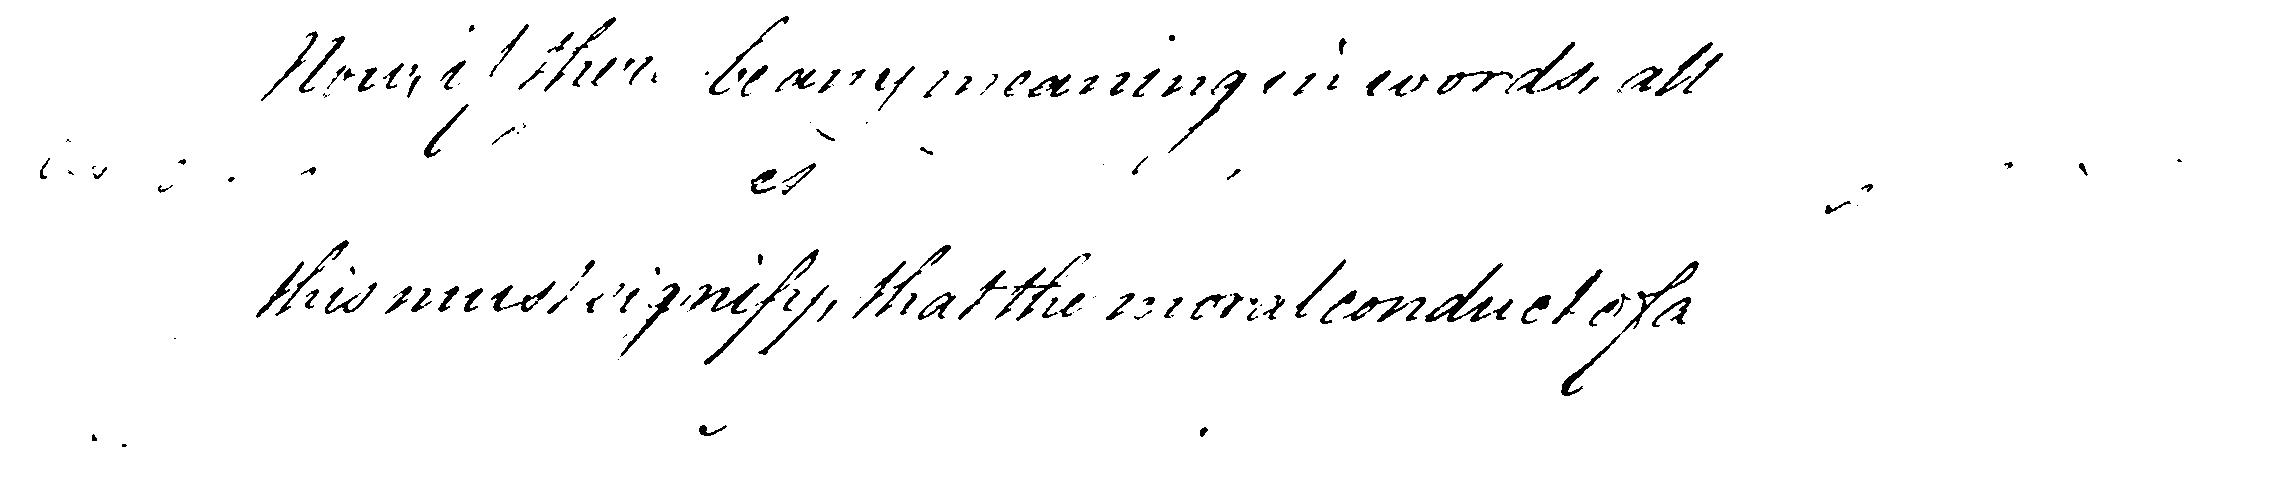 Now, if there be any meaning in words, all
this must signify, that the moral conduct of a